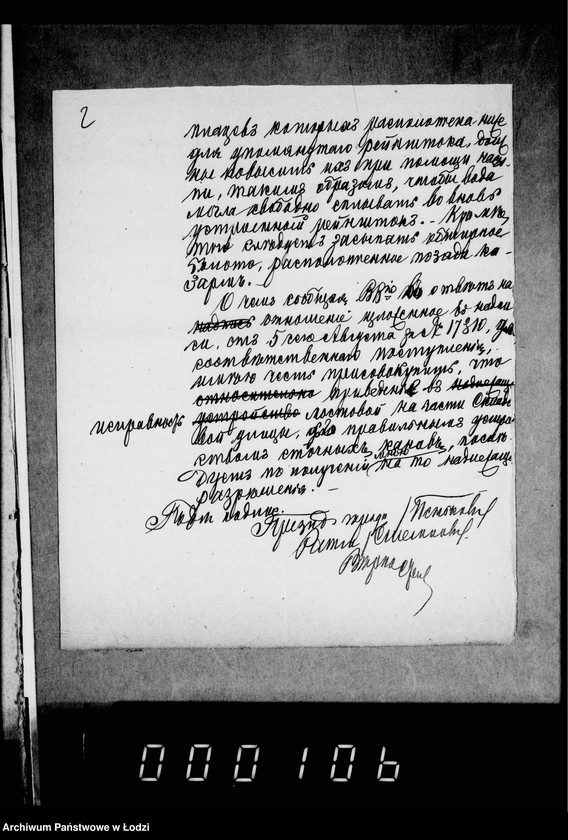 2
плацевъ которыхъ расположена ниже
для упомянутаго рейнштока, долж
ное повысить ихъ при помощи насы-
пи, такимъ образомъ, чтобы вода
могла свободно сплывать во вновь
устроенный рейнштокъ. - Кромѣ
того слѣдуетъ засыпать обширное
болото, расположенное позади ка-
зармъ. -
О чемъ сообщая въ отвѣтъ на
надпись отношеніе изложенное въ надпи
си, отъ 5 сего Августа за № 17310, для
соотвѣтственнаго поступленія,
имѣю честь присовокупить, что
относительно приведенія въ надлежащ
исправность устройство мостовой на части
вой улицы, съ правильнымъ устрой
ствомъ сточныхъ канавъ, послѣ-
дуетъ по полученіи мною на то надлежащ
разрѣшенія. -
Подл. подпис.
Президентъ города
Ратманъ
000106
Archiwum Państwowe w Łodzi